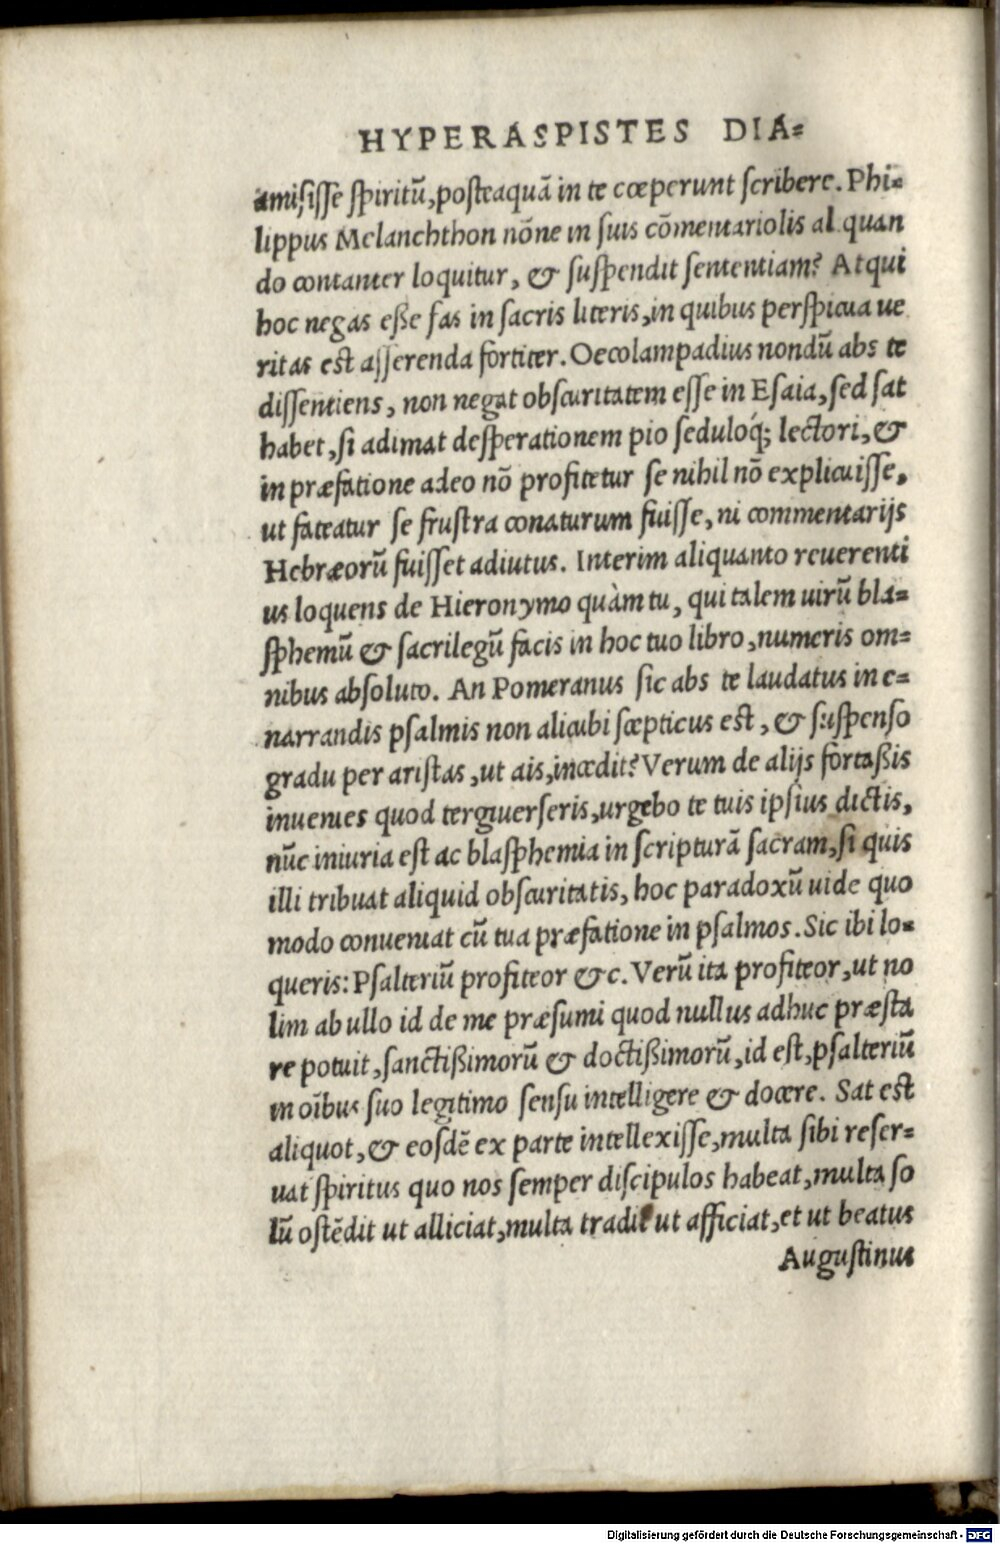 HYPERASPISTES DIA=
amisisse spiritū, posteaquā in te cœperunt scribere. Phi=
lippus Melanchthon nōne in suis cōmentariolis al quan
do contanter loquitur, & suspendit sententiam? Atqui
hoc negas eße fas in sacris literis, in quibus perspicua ue
ritas est asserenda fortiter. Oecolampadius nondū abs te
dissentiens, non negat obscuritatem esse in Esaia, sed sat
habet, si adimat desperationem pio seduloq́; lectori, &
in præfatione adeo nō profitetur se nihil nō explicuisse,
ut fateatur se frustra conaturum fuisse, ni commentarijs
Hebræorū fuisset adiutus. Interim aliquanto reuerenti
us loquens de Hieronymo quàm tu, qui talem uirū bla=
sphemū & sacrilegū facis in hoc tuo libro, numeris om=
nibus absoluto. An Pomeranus sic abs te laudatus in e=
narrandis psalmis non alicubi scepticus est, & suspenso
gradu per aristas, ut ais, incedit? Verum de alijs fortaßis
inuenies quod tergiuerseris, urgebo te tuis ipsius dictis,
nūc iniuria est ac blasphemia in scripturā sacram, si quis
illi tribuat aliquid obscuritatis, hoc paradoxū uide quo
modo conueniat cū tua præfatione in psalmos. Sic ibi lo=
queris: Psalteriū profiteor &c. Verū ita profiteor, ut no
lim ab ullo id de me præsumi quod nullus adhuc præsta
re potuit, sanctißimorū & doctißimorū, id est, psalteriū
in oībus suo legitimo sensu intelligere & docere. Sat est
aliquot, & eosdē ex parte intellexisse, multa sibi reser=
uat spiritus quo nos semper discipulos habeat, multa so
lū ostēdit ut alliciat, multa tradit ut afficiat, et ut beatus
Augustinus
Digitalisierung gefördert durch die Deutsche Forschungsgemeinschaft - DFG